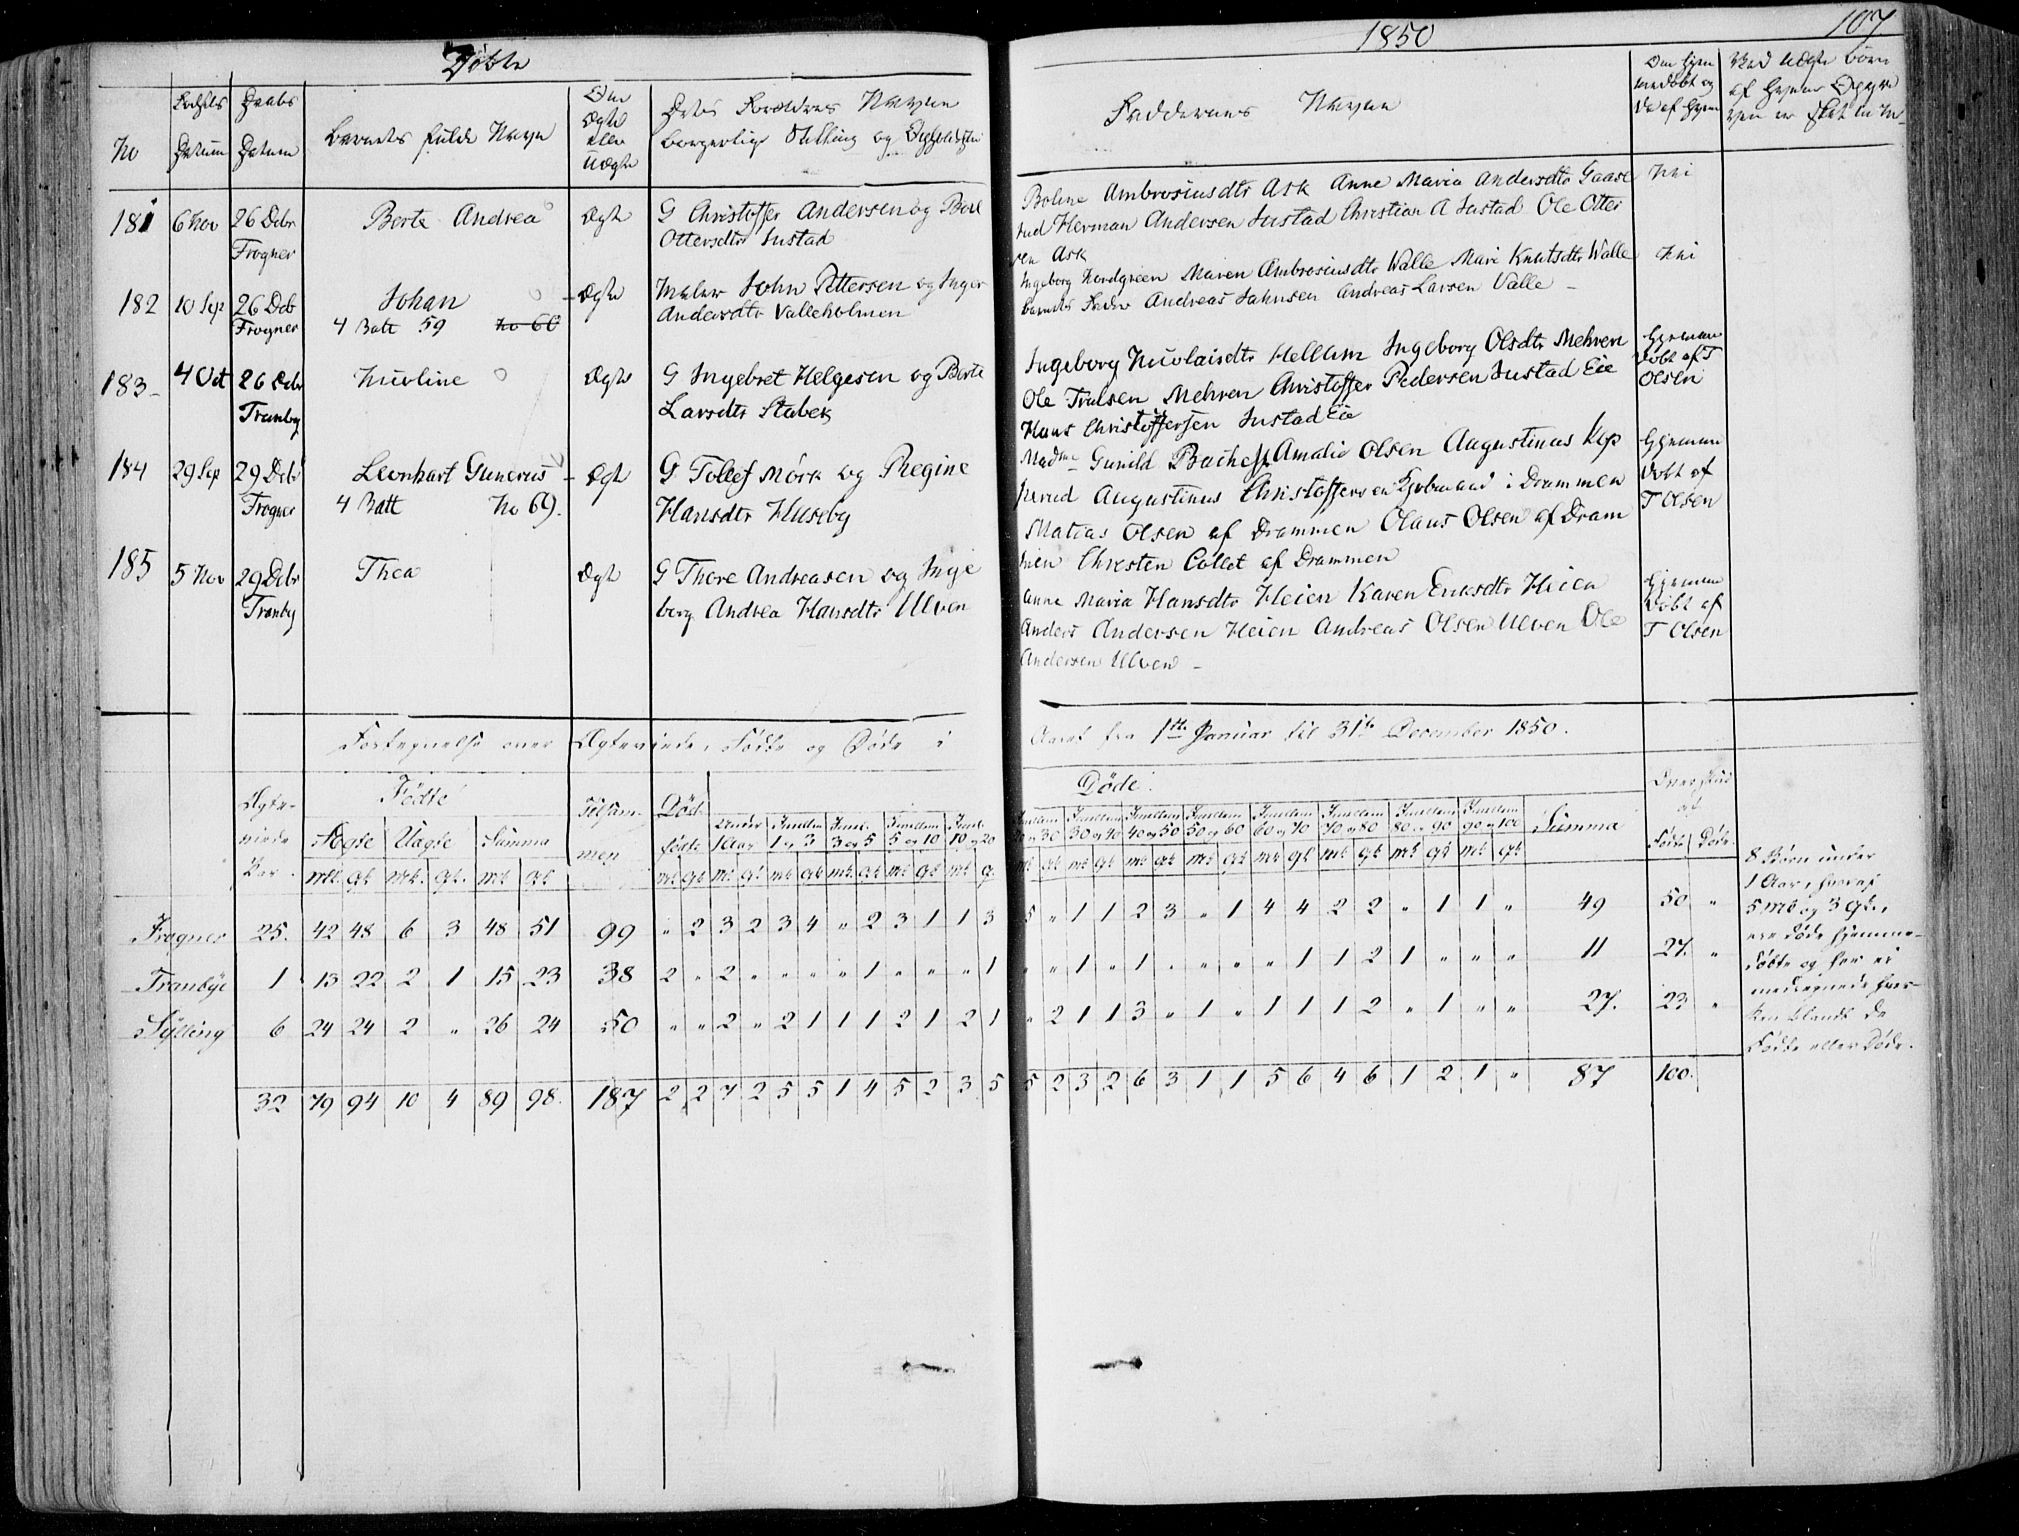 Døbte
1850
107
No
Fødsels Datum
Daabs Datum
Barnets fulde Navn
Om Ægte eller Uægte
Dets Forældres Navne
borgerlige Stilling og Opholdsted
Faddernes Navne
Om hjemmedøbt og da af hvem
181 6 Nov 26 Debr Frogner Berte Andrea Ægte G Christoffer Andersen og Berte
Ottersdtr Justad
Boline Ambrosiusdtr Ask Anne Maria Andersdtr Gaase
rud Herman Andersen Justad Christian A Justad Ole Otter
sen Ask
Nei
182 10 Sep 26 Debr Frogner Johan Ægte Maler John Pettersen og Inger
4 Batt 59 No 60
Andersdtr Valleholmen
Ingeborg Nordgreen Maren Ambrosiusdtr Walle Mari Knutsdtr Walle
barnets Fader Andreas Jahnsen Andreas Larsen Valle –
Nei
183 4 Oct 26 Debr Tranby Nicoline Ægte G Ingebret Helgesen og Berte
Larsdtr Stabek
Ingeborg Nicolaisdtr Hellum Ingeborg Olsdtr Mehren
Ole Trulsen Mehren Christoffer Pedersen Justad Eie
Hans Christoffersen Justad Eie
Hjemme
døbt af T
Olsen
184 29 Sep 29 Debr Frogner Leonhart Gunerius Ægte G Tollef Mörk og Regine
4 Batt No 69.
Hansdtr Huseby
Madme Gunild Bache Amalie Olsen Augustinus Kop
perud Augustinus Christoffersen Kjøbmand i Drammen
Matias Olsen af Drammen Olaus Olsen af Dram
men Chresten Collet af Drammen
Hjemme
døbt af
T Olsen
185 5 Nov 29 Debr Tranby Thea Ægte G Thore Andreasen og Inge
borg Andrea Hansdtr Ulven
Anne Maria Hansdtr Heien Karen Eriksdtr Heien
Anders Andersen Heien Andreas Olsen Ulven Ole
Andersen Ulven –
Hjemme
døbt af
T Olsen
Fortegnelse over Ægteviede, Fødte og Døde i
Aaret fra 1ste Januar til 31te December 1850.
Ægteviede Par
Fødte
Tilsammen
Dødfødte
Døde
Overskud af
Ægte Uægte Summa
Under 1 Aar Imellem 1 og 3 Imel. 3 og 5 Imellem 5 og 10 Imel. 10 og 20
Imellem 20 og 30 Imellem 30 og 40 Imellem 40 og 50 Imellem 50 og 60 Imellem 60 og 70 Imellem 70 og 80 Imellem 80 og 90 Imellem 90 og 100 Summa
Fødte Døde
Mk. Qk. Mk. Qk. Mk. Qk.
Frogner 25. 42 48 6 3 48 51 99 „ 2 3 2 3 4 „ 2 3 1 1 3 5 „ 1 1 2 3 „ 1 4 4 2 2 „ 1 1 „ 49 50 „
Tranbye 1 13 22 2 1 15 23 38 2 „ 2 „ „ „ „ 1 „ „ „ 1 „ „ 1 „ 1 „ „ „ „ 1 1 2 1 „ „ „ 11 27. „
Sylling 6 24 24 2 „ 26 24 50 „ „ 2 „ 2 1 1 1 2 1 2 1 „ 2 1 1 3 „ 1 „ 1 1 1 2 „ 1 „ „ 27. 23 „
32 79 94 10 4 89 98. 187 2 2 7 2 5 5 1 4 5 2 3 5 5 2 3 2 6 3 1 1 5 6 4 6 1 2 1 „ 87 100.
8 Børn under
1 Aar, hvoraf
5 Mk og 3 Qk.,
ere døde hjemme-
døbte og her ei
medregnede hver-
ken blandt de
Fødte eller Døde.